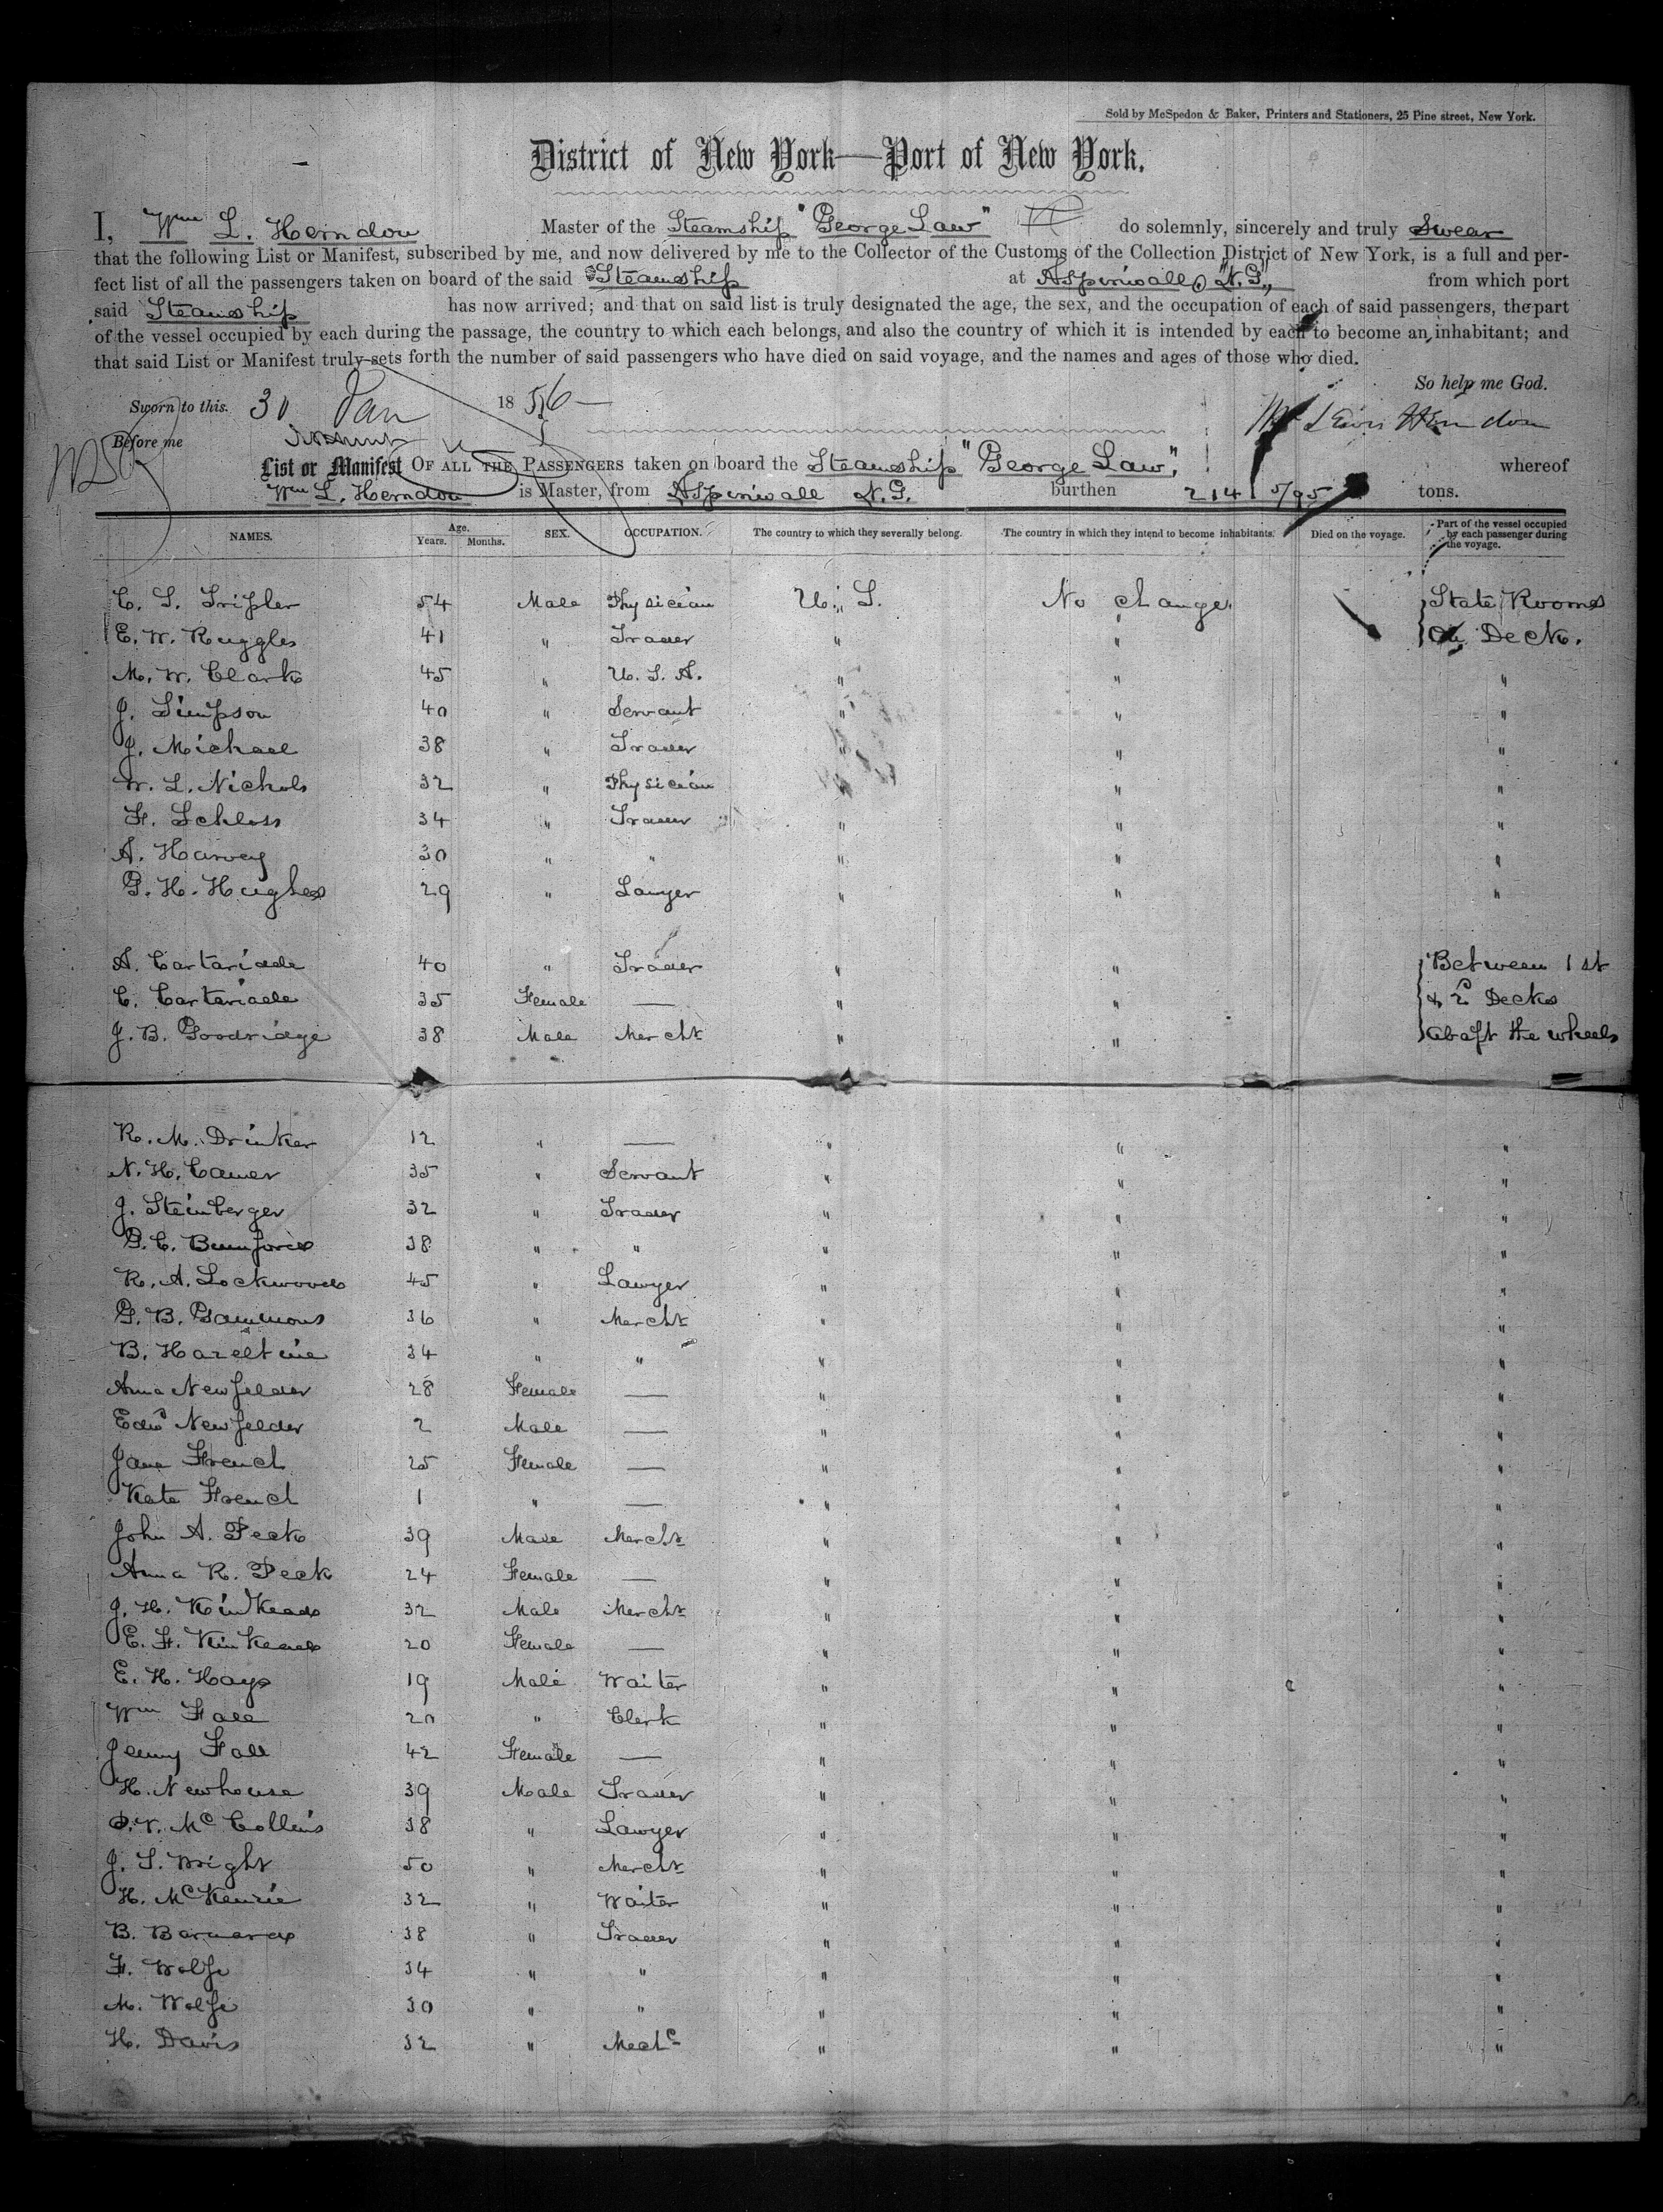 Sold by McSpedon & Baker, Printers and Stationers, 25 Pine street, New York.
District of New York—Port of New York.
I, Wm L. Herndon Master of the Steamship "George Law" do solemnly, sincerely and truly Swear
that the following List or Manifest, subscribed by me, and now delivered by me to the Collector of the Customs of the Collection District of New York, is a full and per-
fect list of all the passengers taken on board of the said Steamship at Aspinwall, "N.G.," from which port
said Steamship has now arrived; and that on said list is truly designated the age, the sex, and the occupation of each of said passengers, the part
of the vessel occupied by each during the passage, the country to which each belongs, and also the country of which it is intended by each to become an inhabitant; and
that said List or Manifest truly sets forth the number of said passengers who have died on said voyage, and the names and ages of those who died.
So help me God.
Sworn to this. 30 Jan 1856 —
Wm Lewis Herndon
Before me
List or Manifest OF ALL THE PASSENGERS taken on board the Steamship "George Law", whereof
Wm L. Herndon is Master, from Aspinwall N.G. burthen 2141 5/95 tons.
NAMES. Age. Years. Months. SEX. OCCUPATION. The country to which they severally belong. The country in which they intend to become inhabitants. Died on the voyage. Part of the vessel occupied by each passenger during the voyage.
C. S. Tripler 54 Male Physician U. S. No change State Rooms
E. W. Ruggles 41 " Trader " " On Deck.
M. W. Clark 45 " U. S. A. " " "
J. Simpson 40 " Servant " " "
J. Michael 38 " Trader " " "
W. L. Nichols 32 " Physician " " "
F. Schloss 34 " Trader " " "
A. Harvey 30 " " " " "
G. H. Hughes 29 " Lawyer " " "
A. Cartariade 40 " Trader " " Between 1st
C. Cartariade 35 Female — " " & 2d Decks
J. B. Goodridge 38 Male Mercht " " abaft the wheels
R. M. Drinker 12 " — " " "
N. H. Camer 35 " Servant " " "
J. Steinberger 32 " Trader " " "
G. C. Bumford 38 " " " " "
R. A. Lockwood 45 " Lawyer " " "
G. B. Gammons 36 " Mercht " " "
B. Hazeltine 34 " " " " "
Anna Newfelder 28 Female — " " "
Edwd Newfelder 2 Male — " " "
Jane French 25 Female — " " "
Kate French 1 " — " " "
John A. Peck 39 Male Mercht " " "
Anna R. Peck 24 Female — " " "
J. H. Kinkead 32 Male Mercht " " "
E. F. Kinkead 20 Female — " " "
E. H. Hays 19 Male Waiter " " "
Wm Fall 20 " Clerk " " "
Jenny Fall 42 Female — " " "
H. Newhouse 39 Male Trader " " "
D. V. McCollins 38 " Lawyer " " "
J. S. Wright 50 " Mercht " " "
H. McKenzie 32 " Waiter " " "
B. Barnard 38 " Trader " " "
F. Wolfe 34 " " " " "
M. Wolfe 30 " " " " "
H. Davis 32 " Mechc " " "